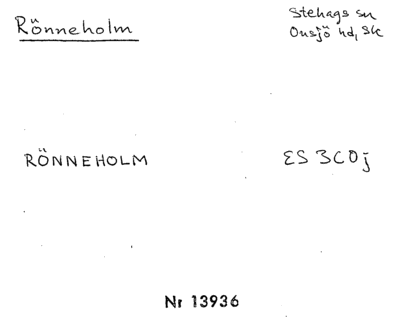 Rönneholm
Stehags sn
Onsjö hd, Sk
RÖNNEHOLM
ES 3CDj
Nr 13936